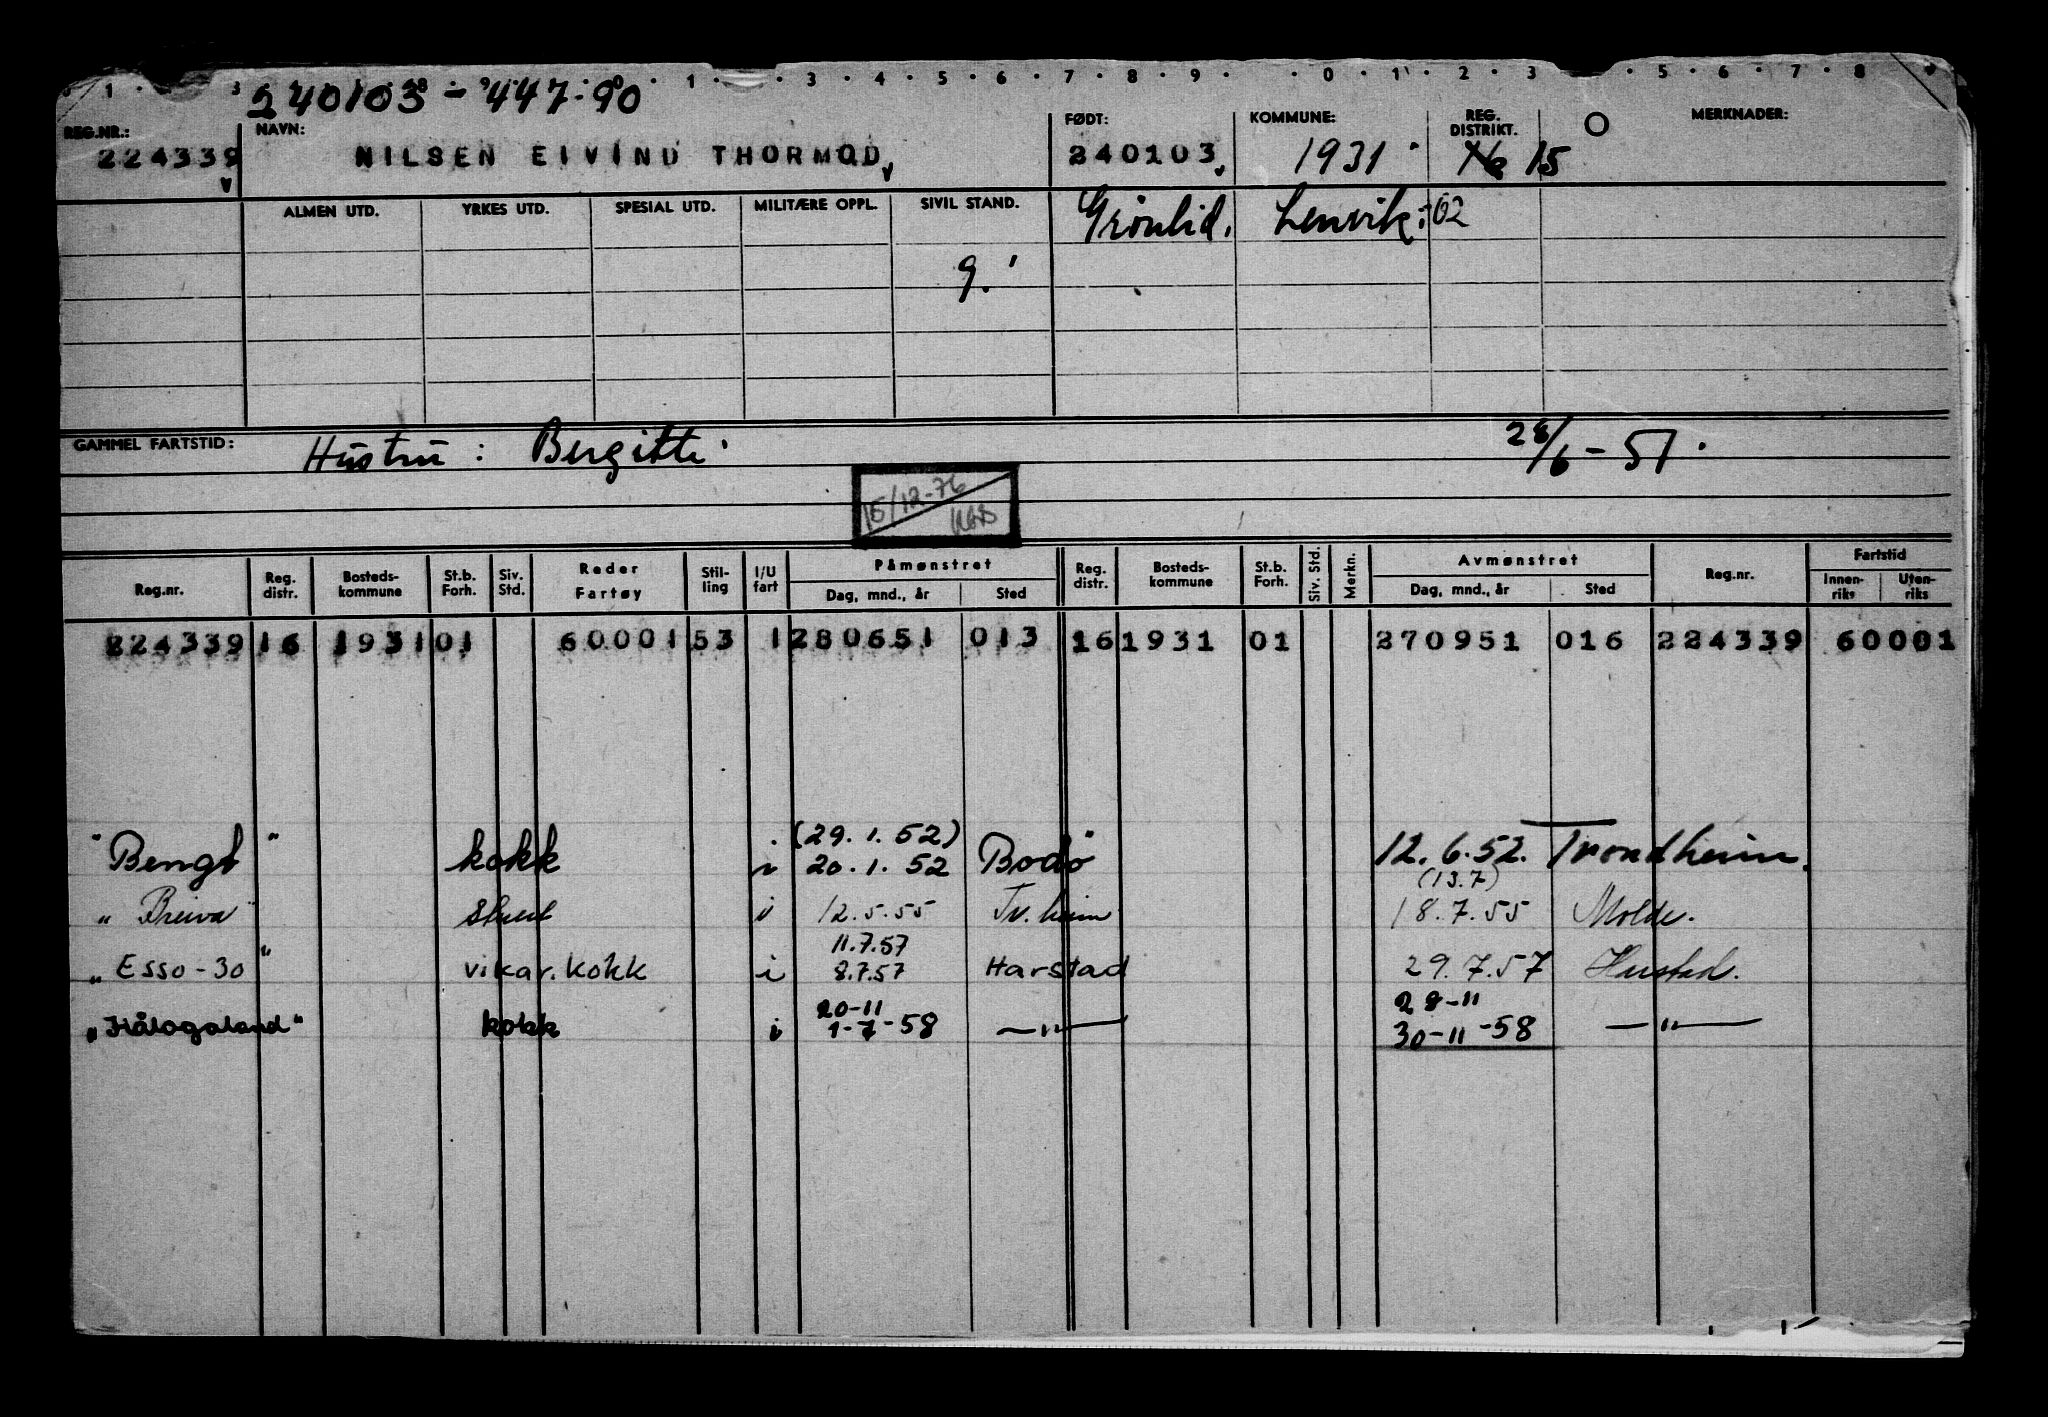 240103 - 447.90
REG.NR.: NAVN: FØDT: KOMMUNE: REG. DISTRIKT. MERKNADER:
224339 NILSEN EIVIND THORMOD 240103 1931 16 15
ALMEN UTD. YRKES UTD. SPESIAL UTD. MILITÆRE OPPL. SIVIL STAND. Grönlid. Lenvik: 62
g.
GAMMEL FARTSTID: Hustru: Bergitte. 28/6-51.
15/12-76
Påmønstret Avmønstret Fartstid
Reg.nr. Reg. distr. Bosteds-kommune St.b. Forh. Siv. Std. Reder Fartøy Stil-ling I/U fart Dag, mnd., år Sted Reg. distr. Bosteds-kommune St.b. Forh. Siv. Std. Merkn. Dag, mnd., år Sted Reg.nr. Innen-riks Uten-riks
224339 16 1931 01 60001 53 1 280651 013 16 1931 01 270951 016 224339 60001
(29.1.52)
"Bengt" kokk i 20.1.52 Bodö 12.6.52. Trondheim.
(13.7)
"Breiva" stuert i 12.5.55 Tr.heim 18.7.55 Molde.
11.7.57
"Esso-30" vikar.kokk i 8.7.57 Harstad 29.7.57 Hustad.
20-11 28-11
"Hålogaland" kokk i 1-7-58 —"— 30-11-58 —"—